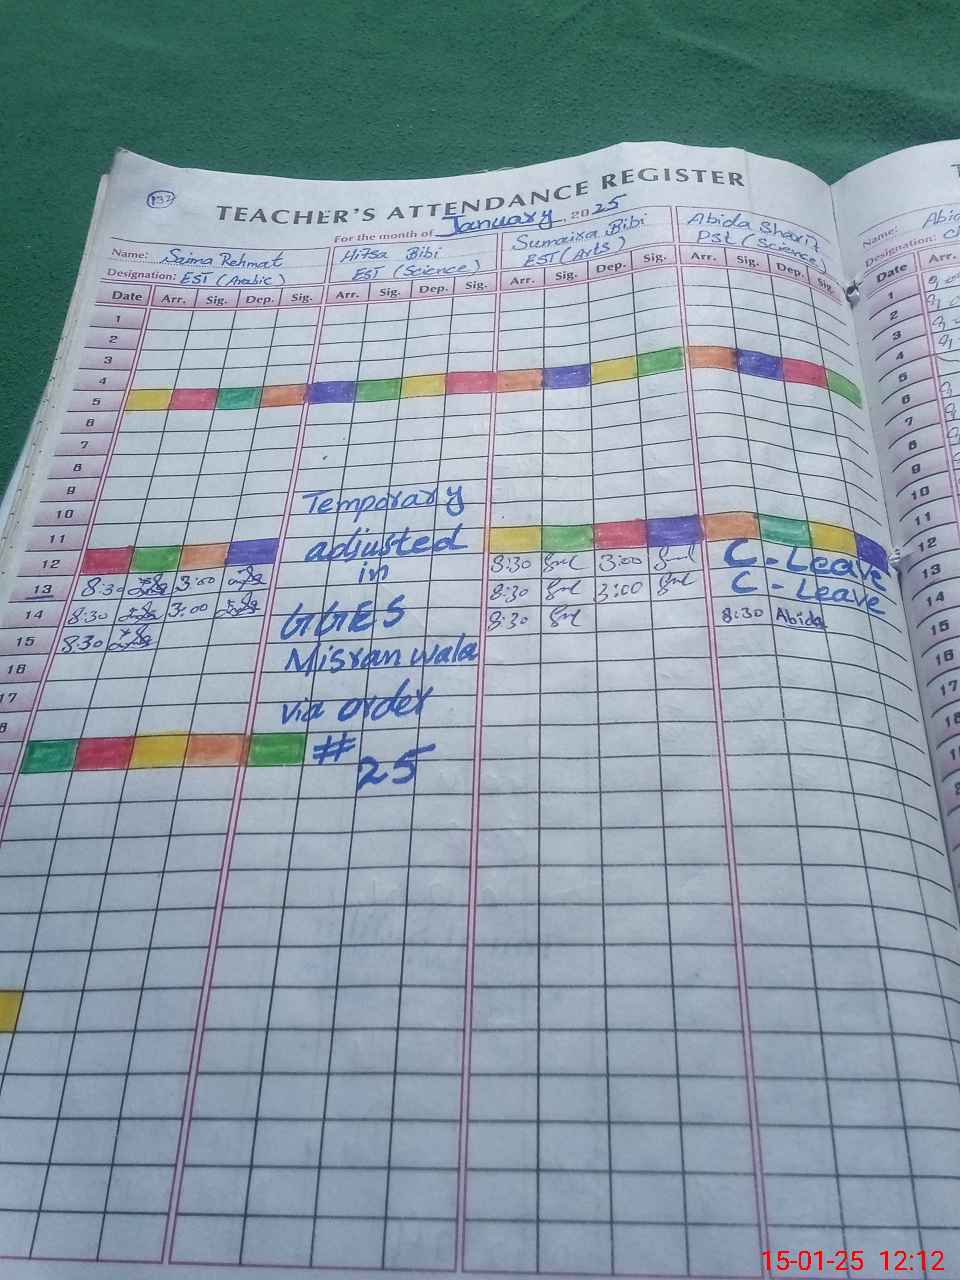 137
TEACHER'S ATTENDANCE REGISTER
For the month of January, 2025
Name: Saima Rehmat Hifsa Bibi Sumaira Bibi Abida Sharif
Designation: EST (Arabic) EST (Science) EST (Arts) PST (Science)
Date Arr. Sig. Dep. Sig. Arr. Sig. Dep. Sig. Arr. Sig. Dep. Sig. Arr. Sig. Dep. Sig.
1
2
3
4
5
6
7
8
9
10
11
12
13 8:30 3:00 8:30 3:00 C-Leave
14 8:30 3:00 8:30 3:00 C-Leave
15 8:30 8:30 8:30 Abida
16
17
Temporary
adjusted
in
GGES
Misran wala
via order
#
25
Name: Abid
Designation:
Date Arr.
1
2
3
4
5
6
7
8
9
10
11
12
13
14
15
16
17
15-01-25 12:12